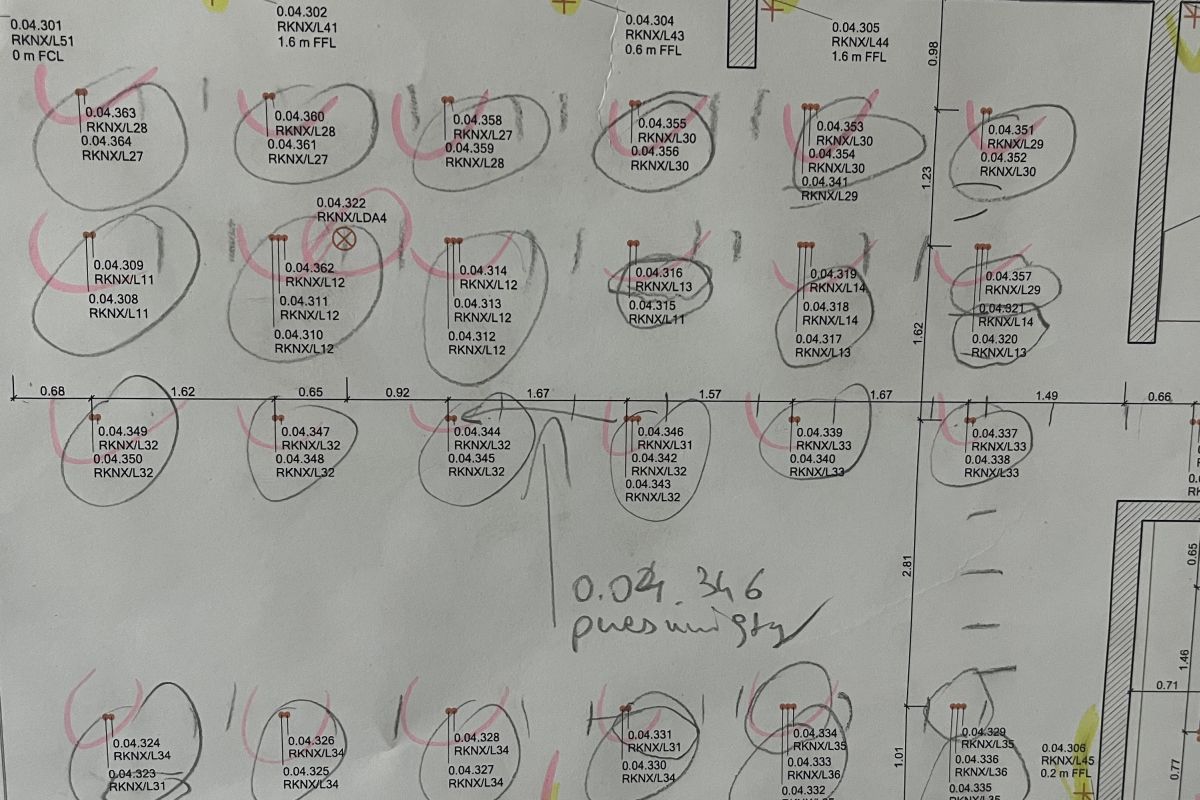 0.04.301
RKNX/L51
0 m FCL
0.04.302
RKNX/L41
1.6 m FFL
0.04.304
RKNX/L43
0.6 m FFL
0.04.305
RKNX/L44
1.6 m FFL
0.98
0.04.363
RKNX/L28
0.04.364
RKNX/L27
0.04.360
RKNX/L28
0.04.361
RKNX/L27
0.04.358
RKNX/L27
0.04.359
RKNX/L28
0.04.355
RKNX/L30
0.04.356
RKNX/L30
0.04.353
RKNX/L30
0.04.354
RKNX/L30
0.04.341
RKNX/L29
0.04.351
RKNX/L29
0.04.352
RKNX/L30
1.23
0.04.322
RKNX/LDA4
0.04.309
RKNX/L11
0.04.308
RKNX/L11
0.04.362
RKNX/L12
0.04.311
RKNX/L12
0.04.310
RKNX/L12
0.04.314
RKNX/L12
0.04.313
RKNX/L12
0.04.312
RKNX/L12
0.04.316
RKNX/L13
0.04.315
RKNX/L11
0.04.319
RKNX/L14
0.04.318
RKNX/L14
0.04.317
RKNX/L13
0.04.357
RKNX/L29
0.04.321
RKNX/L14
0.04.320
RKNX/L13
1.62
0.68 1.62 0.65 0.92 1.67 1.57 1.67 1.49 0.66
0.04.349
RKNX/L32
0.04.350
RKNX/L32
0.04.347
RKNX/L32
0.04.348
RKNX/L32
0.04.344
RKNX/L32
0.04.345
RKNX/L32
0.04.346
RKNX/L31
0.04.342
RKNX/L32
0.04.343
RKNX/L32
0.04.339
RKNX/L33
0.04.340
RKNX/L33
0.04.337
RKNX/L33
0.04.338
RKNX/L33
2.81
0.65
0.04.346
1.46
0.71
0.04.324
RKNX/L34
0.04.323
RKNX/L31
0.04.326
RKNX/L34
0.04.325
RKNX/L34
0.04.328
RKNX/L34
0.04.327
RKNX/L34
0.04.331
RKNX/L31
0.04.330
RKNX/L34
0.04.334
RKNX/L35
0.04.333
RKNX/L36
0.04.332
0.04.329
RKNX/L35
0.04.336
RKNX/L36
0.04.335
1.01
0.04.306
RKNX/L45
0.2 m FFL
0.77